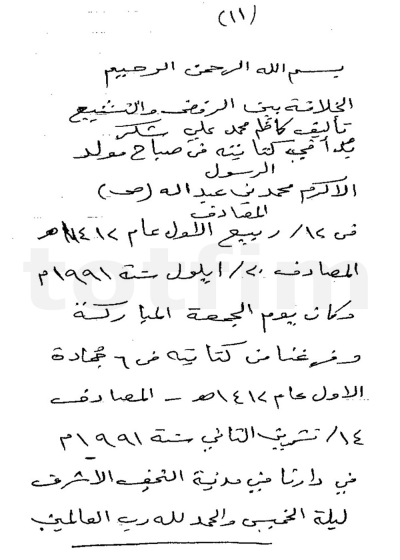 (١١)
بسم الله الرحمن الرحيم
العلاقة بين الرفض والتشيع
تأليف كاظم محمد علي شكر
بدأ في كتابته في صباح مولد
الرسول
الاكرم محمد بن عبد الله (ص)
المصادف
في ١٢/ ربيع الاول عام ١٤١٢هـ
المصادف ٢٠/ ايلول سنة ١٩٩١م
وكان يوم الجمعة المباركة
وفرغنا من كتابته في ٦ جمادة
الاول عام ١٤١٢هـ - المصادف
١٤/ تشرين الثاني سنة ١٩٩١م
في دارنا في مدينة النجف الاشرف
ليلة الخميس والحمد لله رب العالمين
totfim